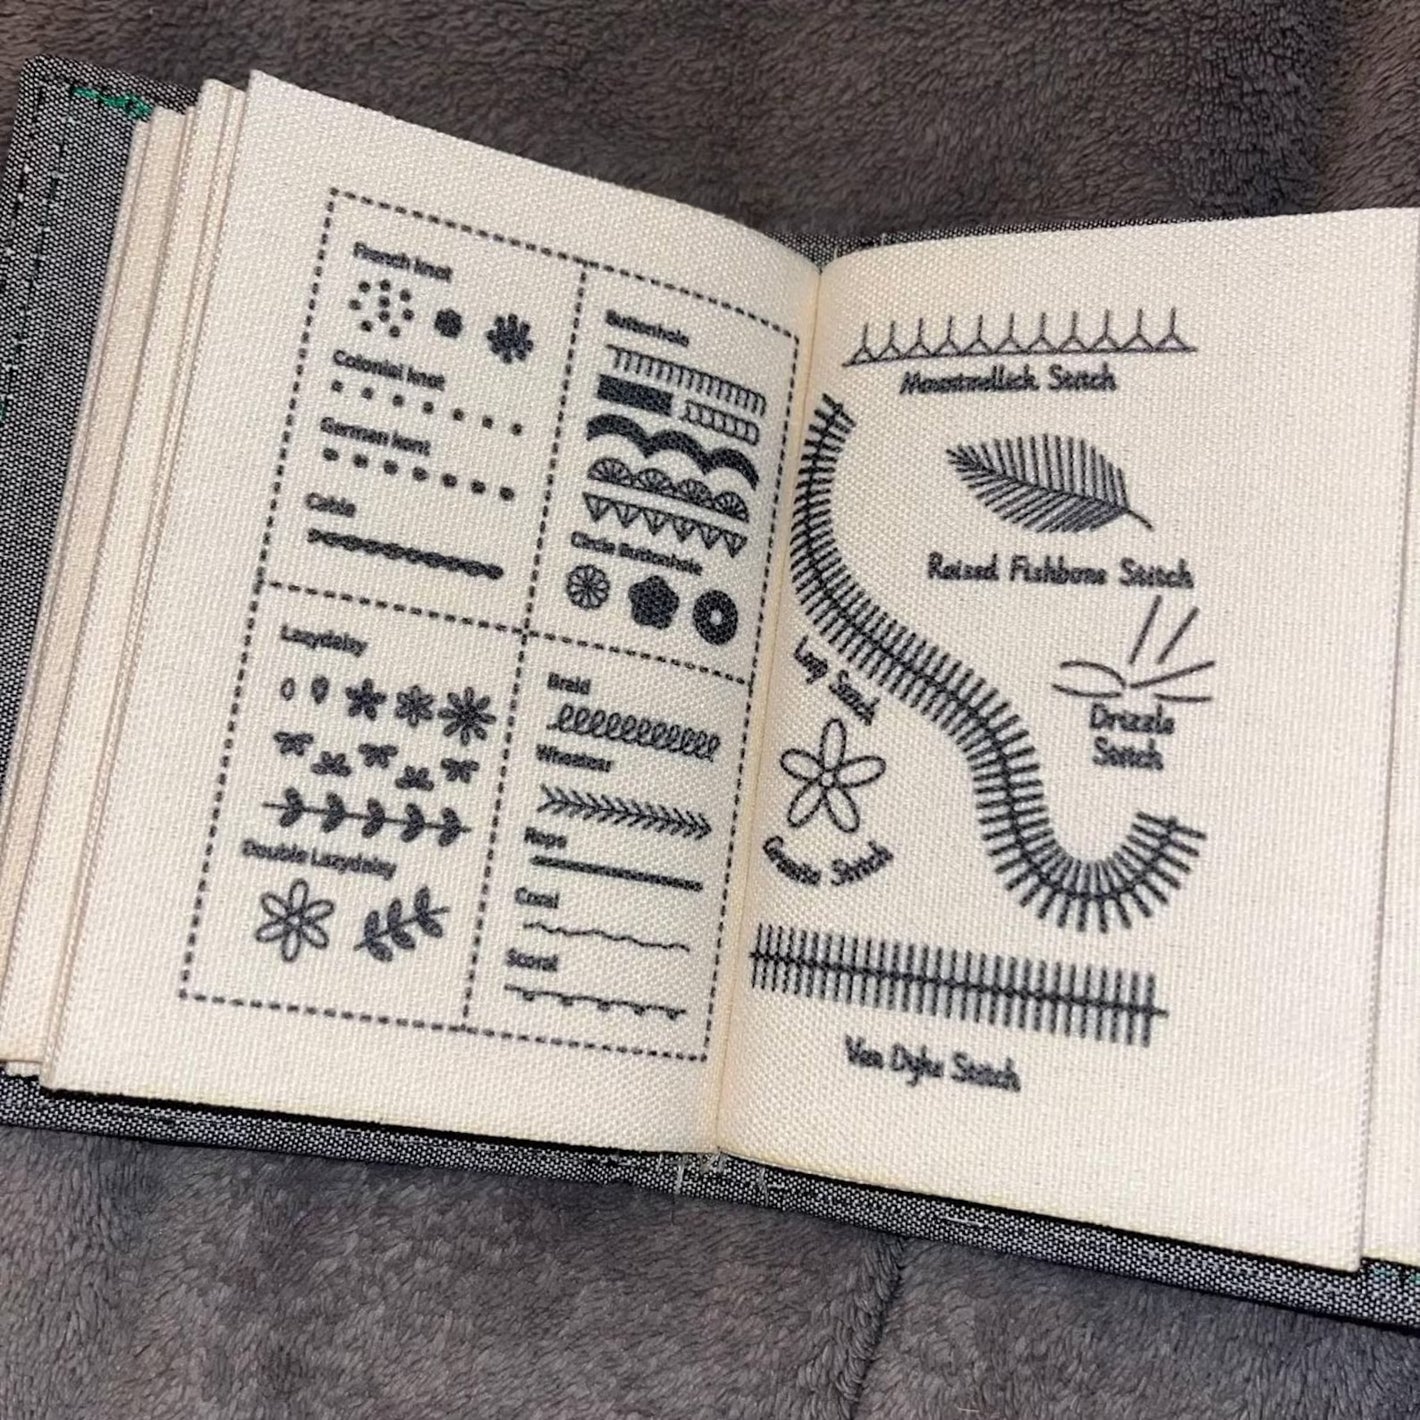 French knot
Colonial knot
German knot
Cable
Buttonhole
Circle Buttonhole
Lazydaisy
Double Lazydaisy
Braid
Wheatear
Rope
Coral
Scoral
Mountmellick Stitch
Raised Fishbone Stitch
Loop Stitch
Drizzle
Stitch
Stitch
Van Dyke Stitch